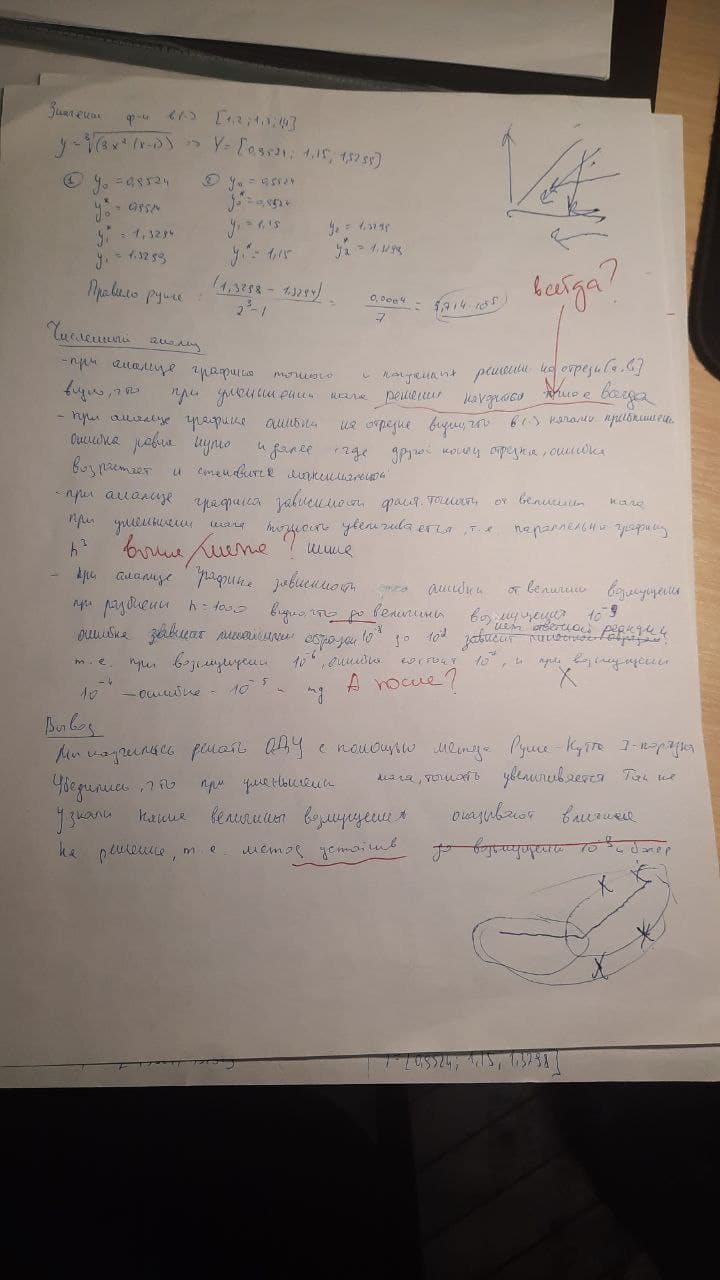 Значения ф-и в (·) [1,2; 1,3; 1,4]
y = ∛(3x²(x-1)) => Y = [0,9524; 1,15; 1,3298]
① y₀ = 0,9524 ② y₀ = 0,9524
y₀* = 0,9524 y₀* = 0,9524
y₁* = 1,3294 y₁ = 1,15 y₂ = 1,3298
y₁ = 1,3293 y₁* = 1,15 y₂* = 1,3298
Правило рунге: (1,3298 - 1,3294) / 2³-1 = 0,0004 / 7 = 5,714·10⁻⁵
всегда?
Численный анализ
-при анализе графика точного и решения на отрезке [a,b]
видно, что при уменьшении шага решение всегда
- при анализе графика ошибки на отрезке видно, что в (·) начала
ошибка равна нулю и далее, где другой конец отрезка, ошибка
возрастает и становится максимальной
-при анализе графика зависимости факт. точности от величины шага
при уменьшении шага точность увеличивается, т.е. параллельна графику
h³ выше/ниже?
- при анализе графика зависимости ошибки от величины возмущения
при разбиении h=1000 видно, что до величины возмущения 10⁻⁹
нет ответной реакции
ошибка зависит образом 10⁻⁸ до 10² зависит линейным образом.
т.е. при возмущении 10⁻⁶, ошибка и при возмущении
10⁻⁴ – ошибка - 10⁻⁵ и тд А после?
Вывод
Мы научились решать ОДУ с помощью метода Рунге-Кутта 3-порядка
Убедились, что при уменьшении шага, точность увеличивается Так же
узнали какие величины возмущения оказывают влияние
на решение, т.е. метод устойчив до возмущения 10⁻⁹ и
[0,9524; 1,15, 1,3298]